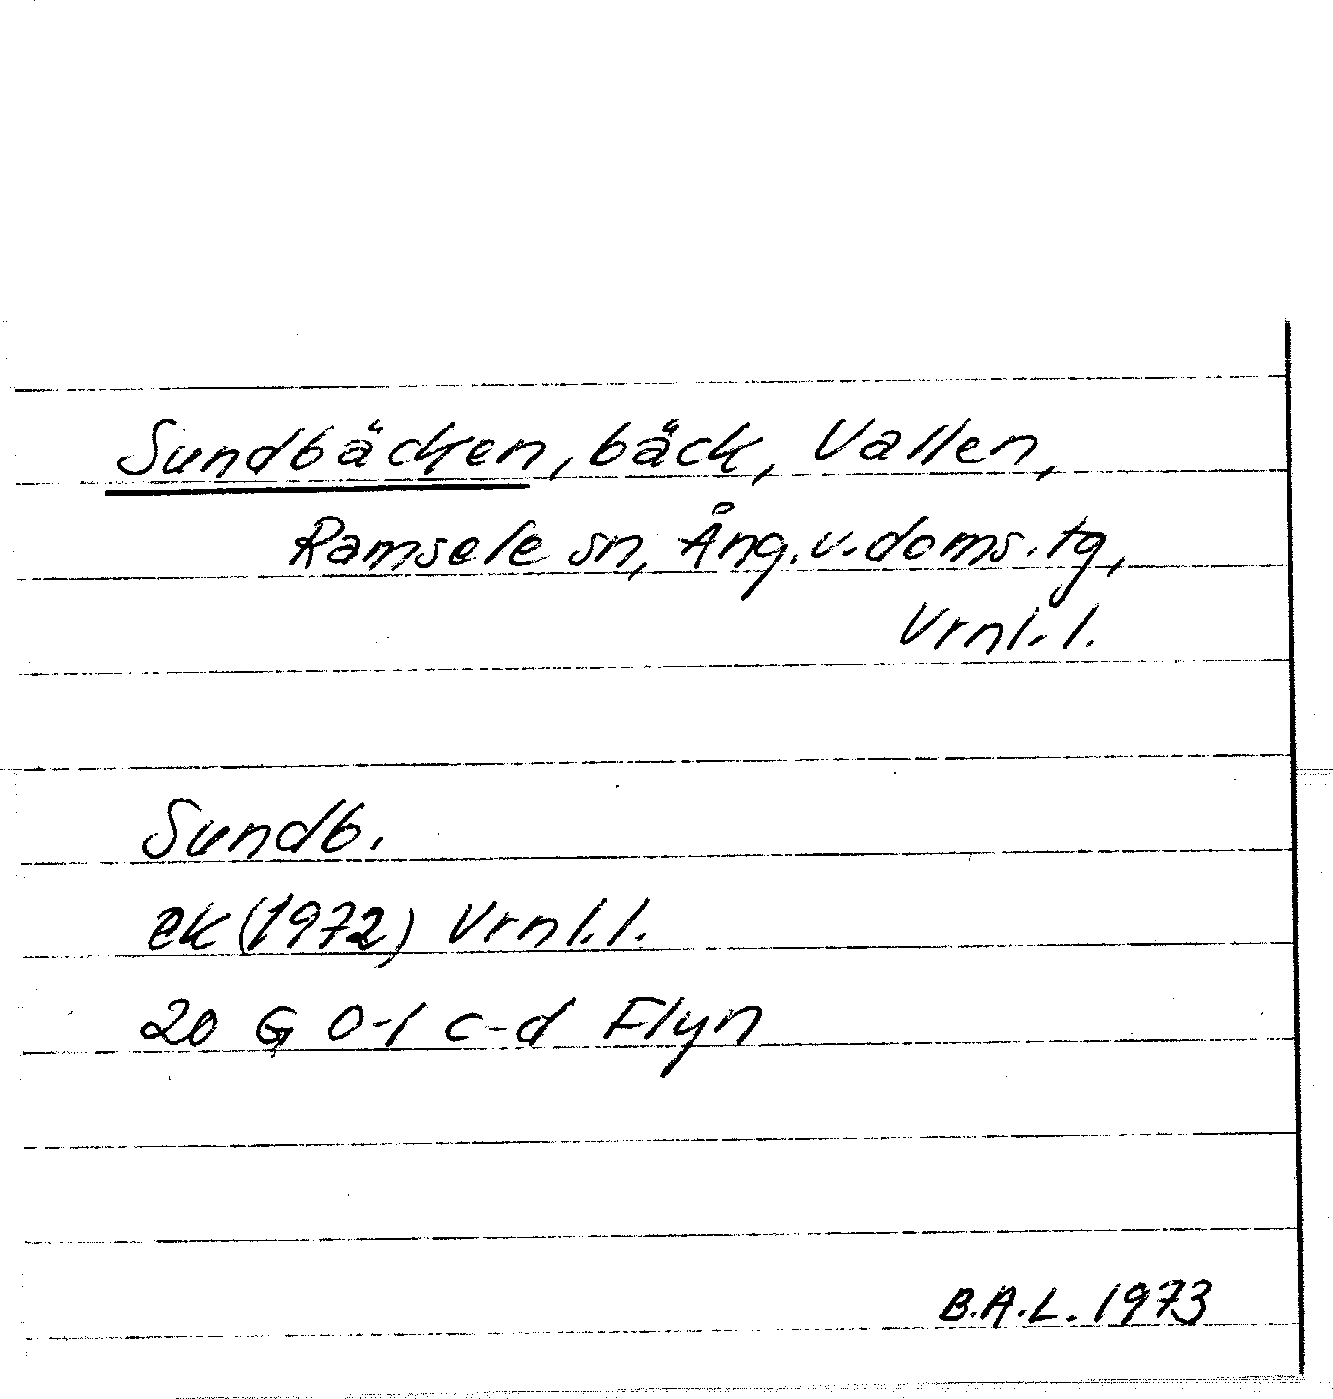 Sundbäcken, bäck, Vallen,
Ramsele sn, Ång.v.doms.tg,
Vrnl.l.
Sundb.
ek (1972) Vrnl.l.
20 G 0-1 c-d Flyn
B.A.L. 1973